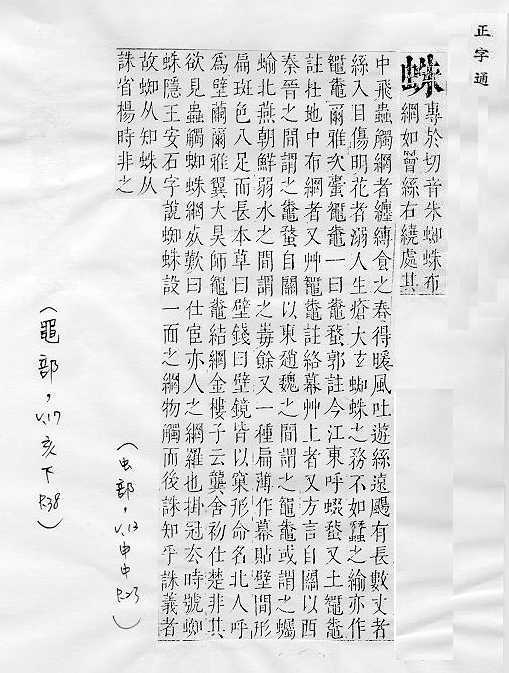 正字通
蛛
專於切音朱蜘蛛布
網如罾絲右繞處其
中飛蟲觸網者纏縛食之春得暖風吐遊絲遠颺有長數丈者
絲入目傷明花者溺人生瘡大玄蜘蛛之務不如蠶之緰亦作
鼄爾雅次蟗鼅鼄一曰鼄蝥郭註今江東呼蝃蝥又土鼅鼄
註在地中布網者又艸鼅鼄註絡幕艸上者又方言自關以西
秦晉之間謂之鼄蝥自關以東趙魏之間謂之鼅鼄或謂之蠾
蝓北燕朝鮮洌水之間謂之蝳蜍又一種扁薄作幕貼壁間形
扁斑色八足而長本草曰壁錢曰壁鏡皆以窠形命名北人呼
爲壁繭爾雅翼大昊師鼅鼄結網金樓子云龔舍初仕楚非其
欲見蟲觸蜘蛛網焂歎曰仕宦亦人之網羅也掛冠去時號蜘
蛛隱王安石字說蜘蛛設一面之網物觸而後誅知乎誅義者
故蜘从知蛛从
誅省楊時非之
(虫部,v.13
申中
p.23)
(黽部,v.17
亥下
p.38)